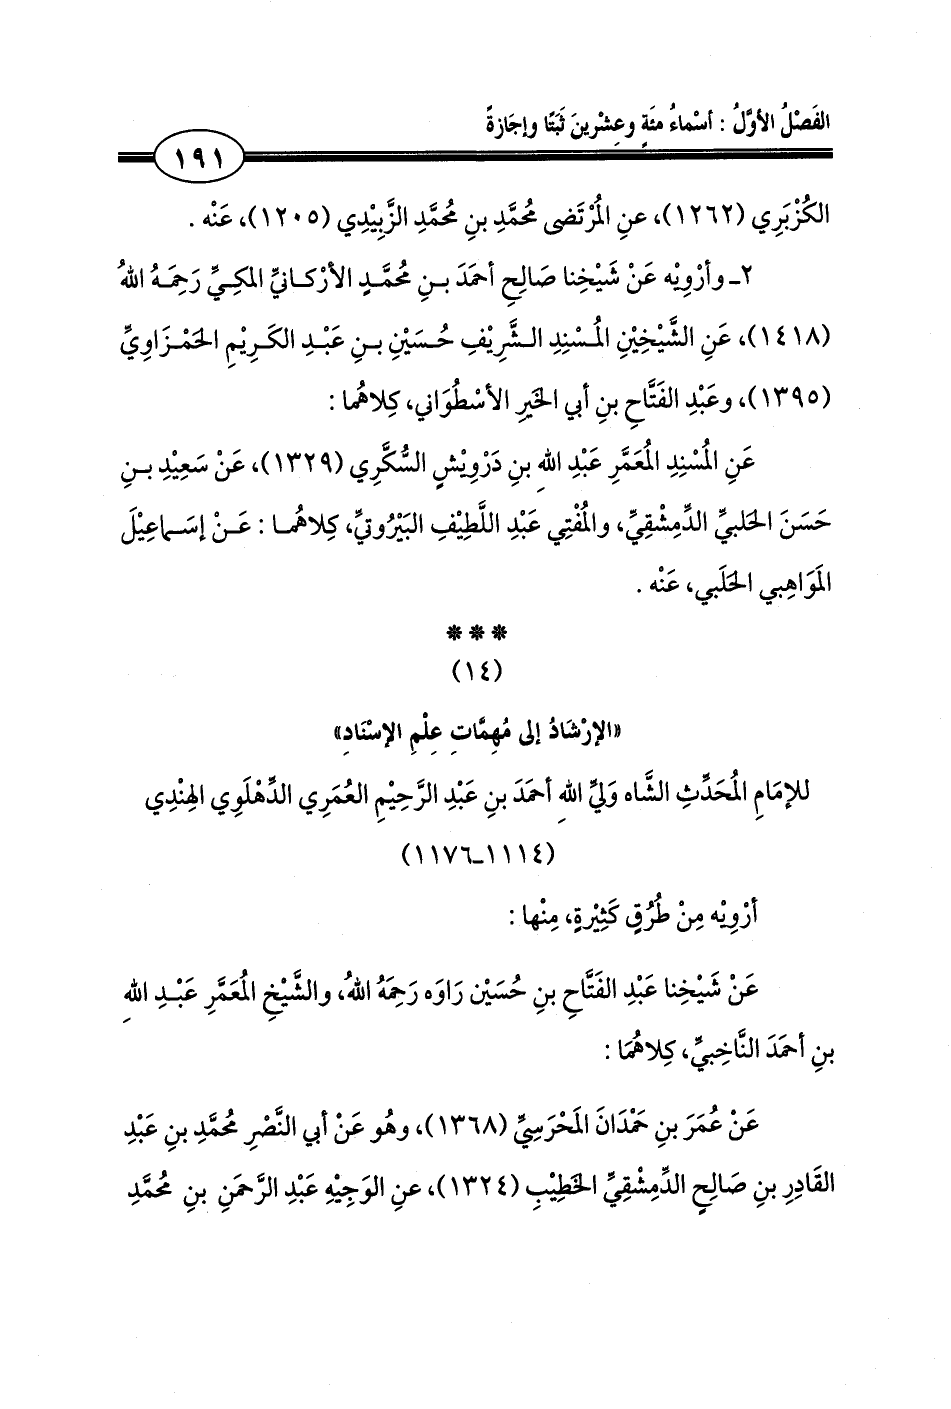 الفَصْلُ الأوَّلُ : أسْماءُ مئَةٍ وعِشْرينَ ثَبَتًا وإجَازةً
١٩١
الكُزْبَرِي (١٢٦٢)، عنِ المُرْتَضى مُحمَّدِ بنِ مُحمَّدِ الزَّبِيْدِي (١٢٠٥)، عَنْه .
٢ـ وأرْوِيْه عَنْ شَيْخِنا صَالِحِ أحمَدَ بـنِ مُحمَّـدٍ الأرْكـانيِّ المكِـيِّ رَحِمَـهُ اللهُ
(١٤١٨)، عَنِ الشَّيْخِيْنِ المُسْنِدِ الـشَّرِيْفِ حُـسَيْنِ بـنِ عَبْـدِ الكَـرِيْمِ الحَمْـزَاوِيِّ
(١٣٩٥)، وعَبْدِ الفَتَّاحِ بنِ أبي الخَيرِ الأسْطُوَاني، كِلاهُما :
عَنِ المُسْنِدِ المُعَمَّرِ عَبْدِ اللهِ بنِ دَرْوِيْشٍ السُّكَّرِي (١٣٢٩)، عَنْ سَعِيْدِ بـنِ
حَسَنَ الحَلبيِّ الدِّمِشْقِيِّ، والمُفْتِي عَبْدِ اللَّطِيْفِ البَيْرُوتيِّ، كِلاهُمـا : عَـنْ إسْـماعِيْلَ
المَوَاهِبي الحَلَبي، عَنْه .
***
(١٤)
«الإرْشَادُ إلى مُهِمَّاتِ عِلْمِ الإسْنَادِ»
للإمَامِ المُحَدِّثِ الشَّاه وَليِّ اللهِ أحمَدَ بنِ عَبْدِ الرَّحِيْمِ العُمَرِي الدِّهْلَوِي الهِنْدِي
(١١١٤ـ١١٧٦)
أرْوِيْه مِنْ طُرُقٍ كَثِيْرةٍ، مِنْها :
عَنْ شَيْخِنا عَبْدِ الفَتَّاحِ بنِ حُسَيْن رَاوَه رَحِمَهُ اللهُ، والشَّيْخِ المُعَمَّرِ عَبْـدِ اللهِ
بنِ أحمَدَ النَّاخِبيِّ، كِلاهُمَا :
عَنْ عُمَرَ بنِ حَمْدَانَ المَحْرَسِيِّ (١٣٦٨)، وهُو عَنْ أبي النَّصْرِ مُحمَّدِ بنِ عَبْدِ
القَادِرِ بنِ صَالِحٍ الدِّمِشْقِيِّ الخَطِيْبِ (١٣٢٤)، عنِ الوَجِيْهِ عَبْدِ الرَّحمَنِ بنِ مُحمَّدِ